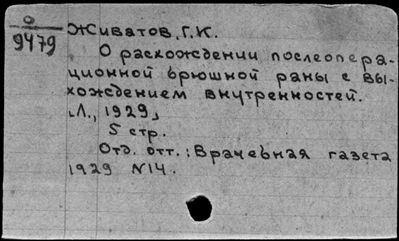 О
9479
Живатов, Г.К.
О расхождении послеопера-
ционной брюшной раны с вы-
хождением внутренностей.
Л., 1929,
5 стр.
Отд. отт.: Врачебная газета
1929 N14.